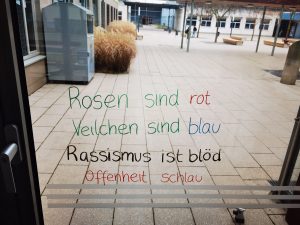 Rosen sind rot
Veilchen sind blau
Rassismus ist blöd
Offenheit schlau